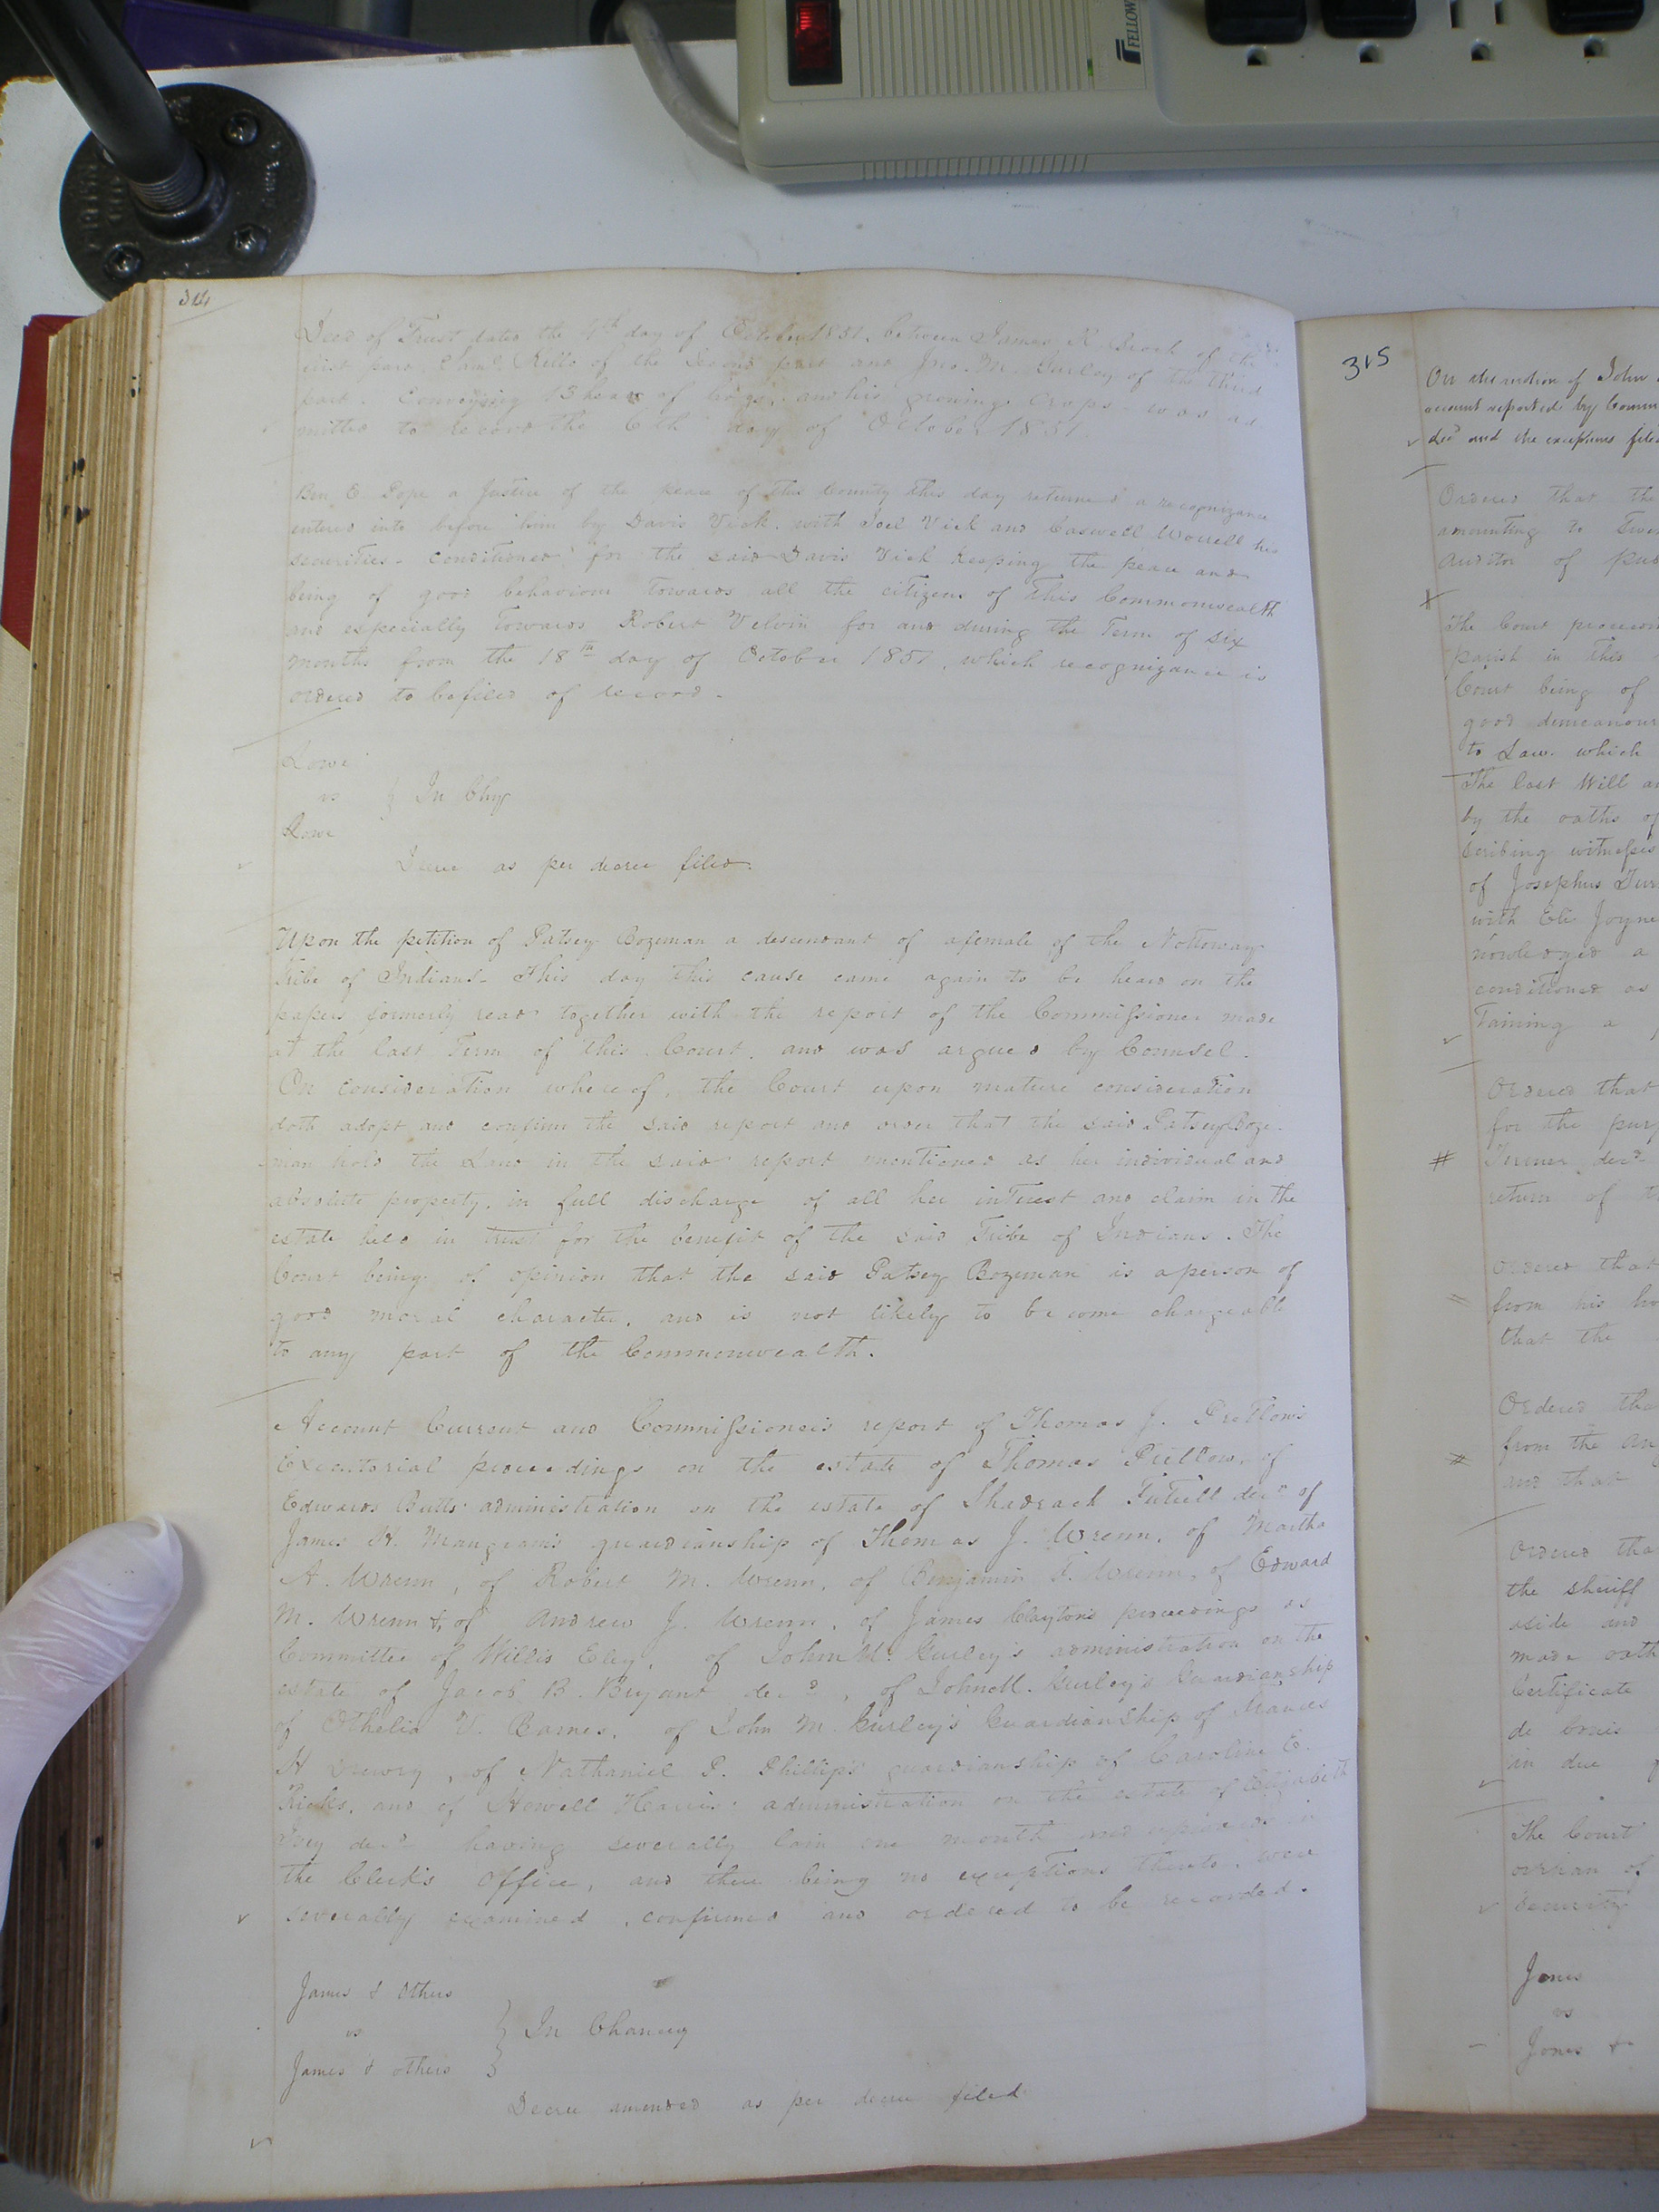 FELLOW
314
Deed of Trust dated the 4th day of October 1851, between James R. Beach of the
first part Saml Kello of the second part and Jno. M. Gurley of the third
part. Conveying 13 head of hogs, and his growing Crops was ad-
mitted to record the 6th day of October 1851.
Ben. E. Pope a Justice of the peace of this County this day returned a recognizance
entered into before him by Davis Vick, with Joel Vick and Caswell Worrell his
securities. conditioned for the said Davis Vick keeping the peace and
being of good behaviour towards all the citizens of this Commonwealth
and especially towards Robert Velvin for and during the Term of six
months from the 18th day of October 1851, which recognizance is
ordered to be filed of record.
Lowe
vs } In Chy
Lowe
Decree as per decree filed.
Upon the petition of Patsey Bozeman a descendant of a female of the Nottoway
Tribe of Indians. This day this cause came again to be heard on the
papers formerly read together with the report of the Commissioner made
at the last Term of this Court, and was argued by Counsel.
On consideration whereof, the Court upon mature consideration
doth adopt and confirm the said report and order that the said Patsey Boze-
man hold the Land in the said report mentioned as her individual and
absolute property, in full discharge of all her interest and claim in the
estate held in trust for the benefit of the said Tribe of Indians. The
Court being of opinion that the said Patsey Bozeman is a person of
good moral character, and is not likely to become chargeable
to any part of the Commonwealth.
Account Current and Commissioners report of Thomas J. Pretlow's
Executorial proceedings on the estate of Thomas Pretlow, of
Edward Butts administration on the estate of Shadrach Futrell decd of
James H. Mangram's guardianship of Thomas J. Wrenn, of Martha
A. Wrenn, of Robert M. Wrenn, of Benjamin F. Wrenn, of Edward
M. Wrenn & of Andrew J. Wrenn, of James Clayton's proceedings as
Committee of Willis Eley, of John M. Gurley's administration on the
estate of Jacob B. Bryant decd, of John M. Gurley's Guardianship
of Othelia V. Barnes, of John M. Gurley's Guardianship of
H Drewry, of Nathaniel P. Phillips guardianship of Caroline E.
Ricks, and of Howell Harris' administration on the estate of Elizabeth
Ivey decd having severally lain one month and exposed in
the Clerk's Office, and there being no exceptions thereto, were
severally examined, confirmed and ordered to be recorded.
James & Others
vs } In Chancery
James & others
Decree amended as per decree filed
315
On the motion of John
account reported by Comm
decd and the exceptions filed
Ordered that the
amounting to Twen
Auditor of pub
The Court proceed
parish in this
Court being of
good demeanour
to Law. which
The last Will an
by the oaths of
scribing witnesses
of Josephus Tur
with Eli Joyne
nowledged a
conditioned as
Taining a
Ordered that
for the purp
Turner decd
return of th
Ordered that
from his ho
that the
Ordered tha
from the an
and that
Ordered tha
the sheriff
aside and
made oath
Certificate
de bonis
in due
The Court
orphan of
Security
Jones
vs
Jones &